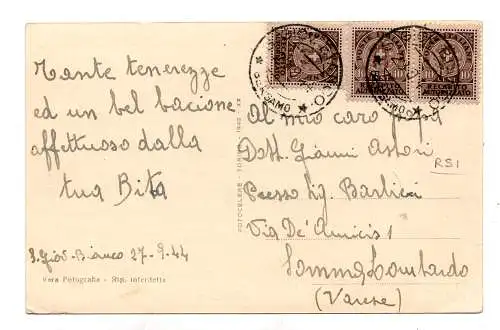 Tante tenerezze
ed un bel bacione
affettuoso dalla
tua Bita
S. Giov. Bianco 27-9-44
Vera Fotografia - Rip. interdetta
FOTOCELERE - TORINO
POSTE ITALIANE
10
RECAPITO
BERGAMO
Al mio caro papà
Dott. Gianni Astori
Presso Sig. Barbieri
Via De' Amicis 1
Somma Lombardo
(Varese)
RSI